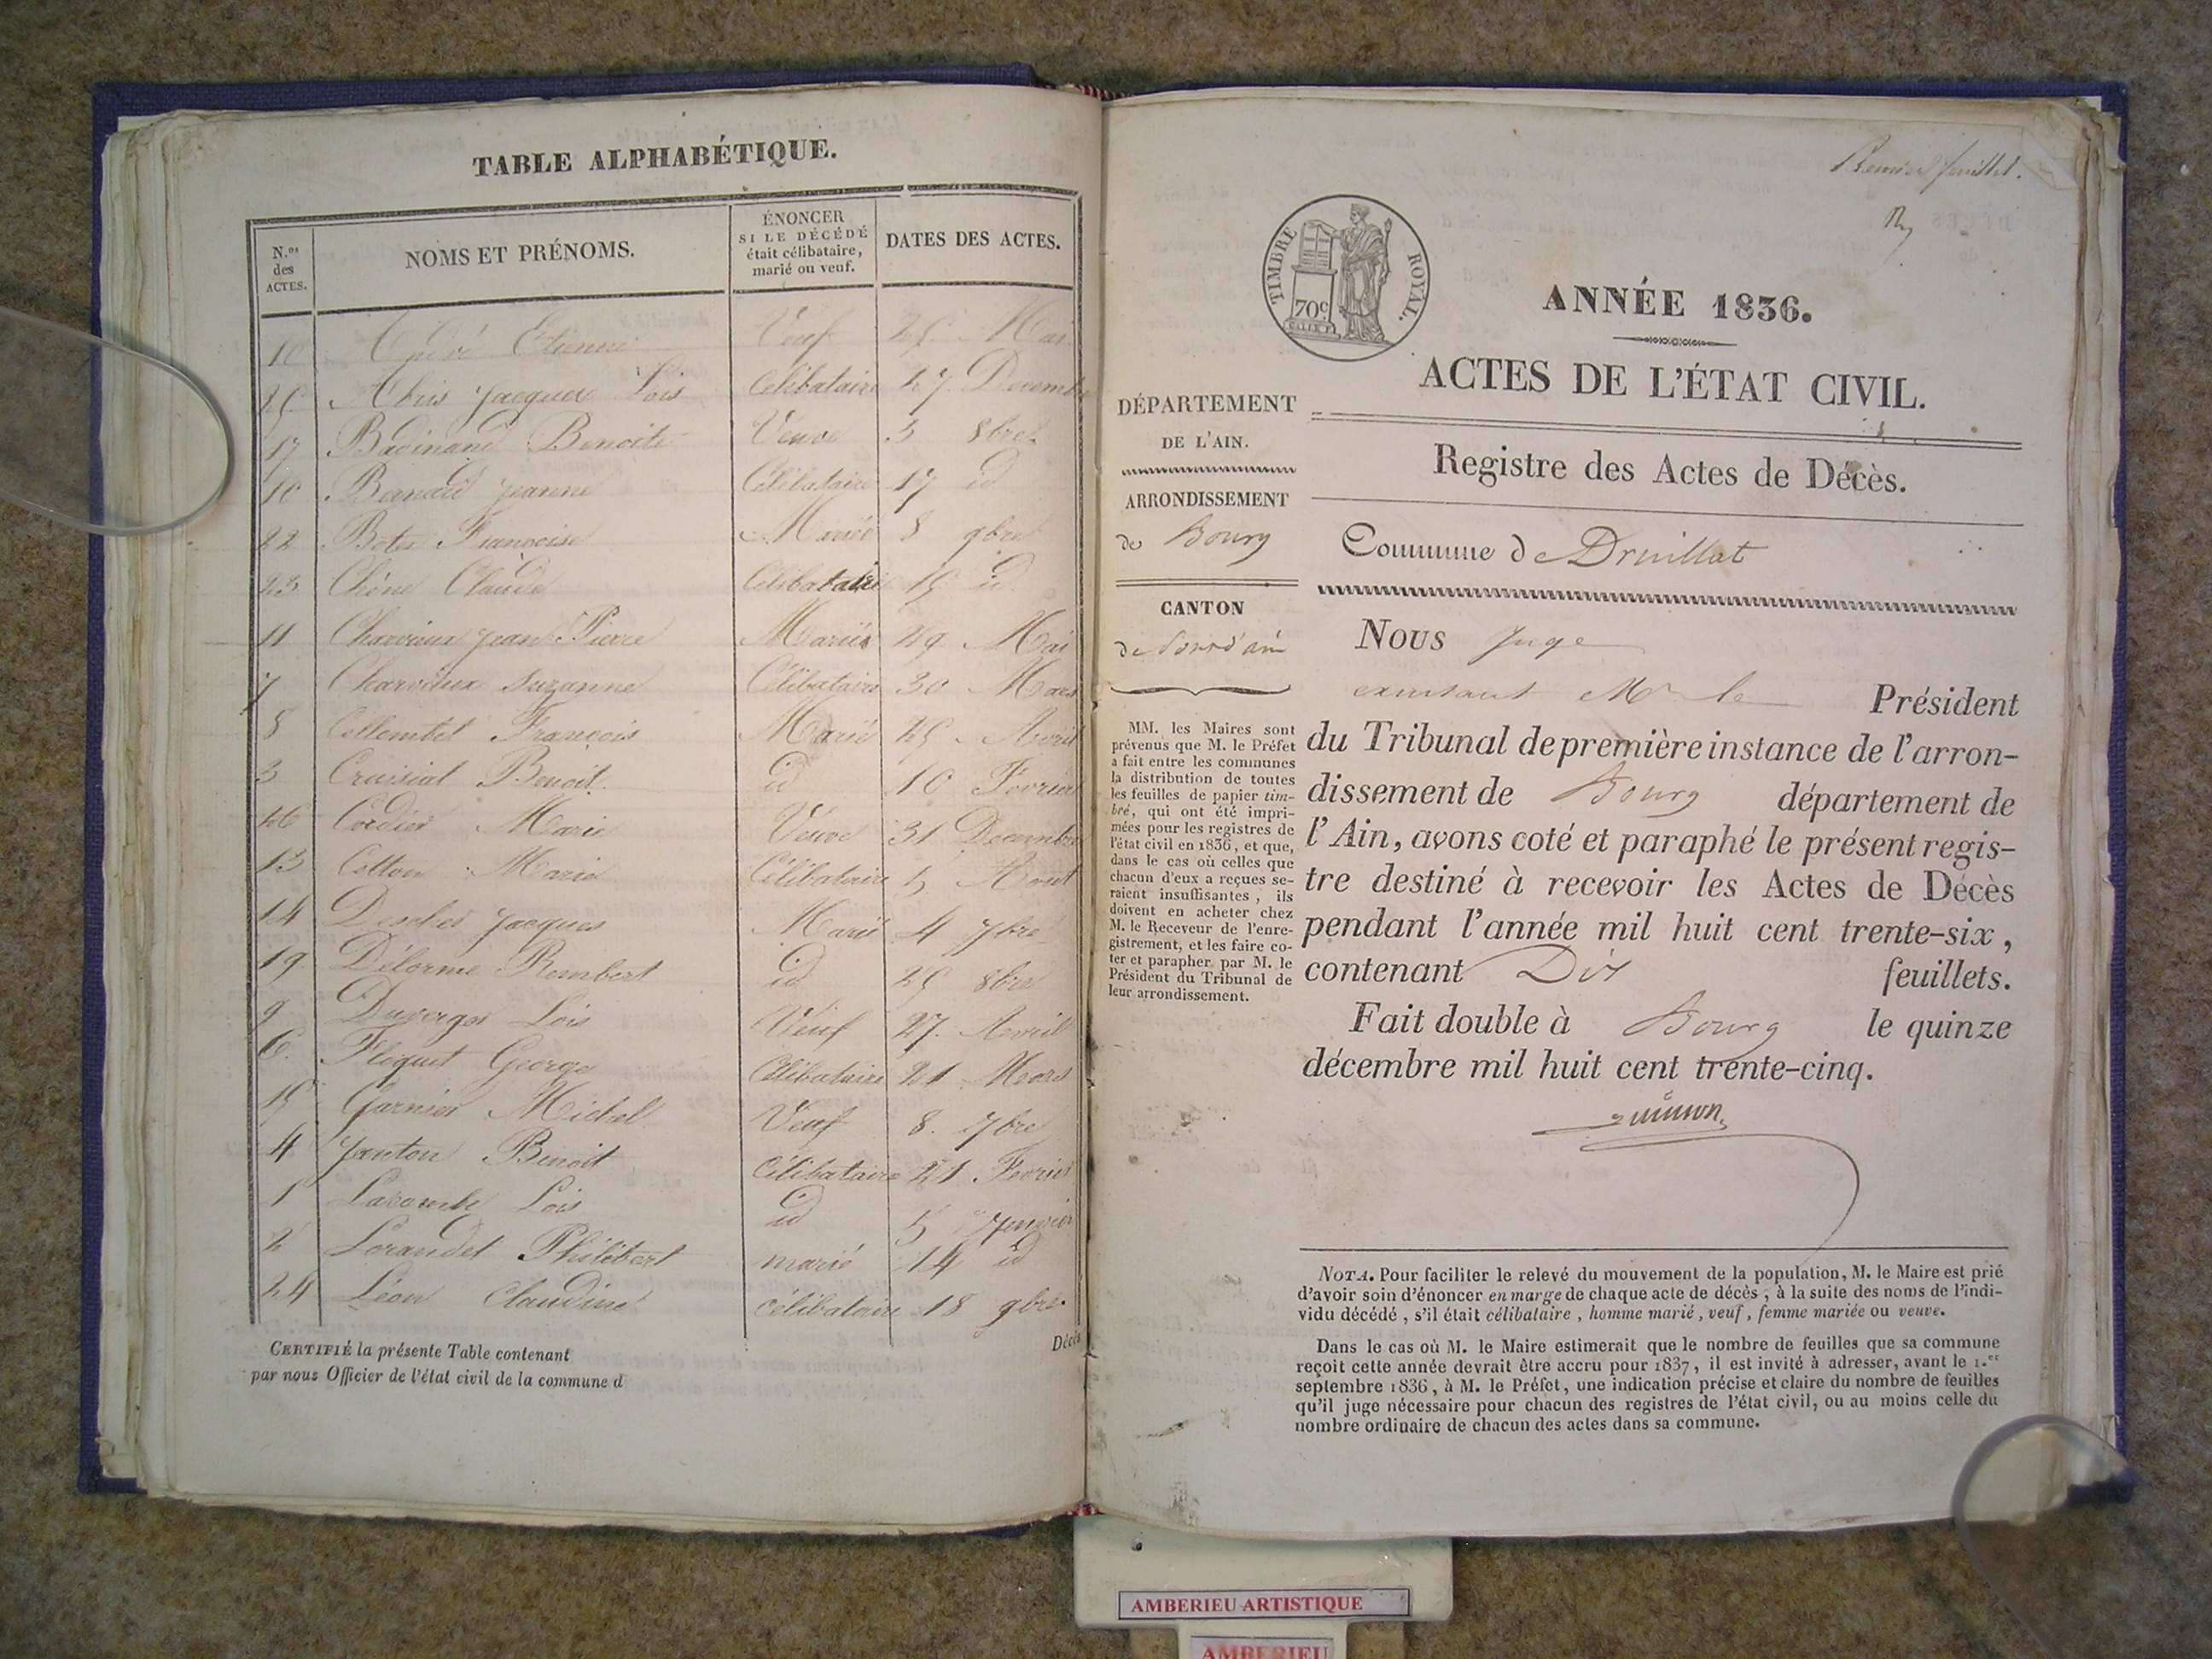 TABLE ALPHABÉTIQUE.
N.os des ACTES.
NOMS ET PRÉNOMS.
ÉNONCER
SI LE DÉCÉDÉ
était célibataire,
marié ou veuf.
DATES DES ACTES.
Etienne Veuf Mai
Jacques Célibataire 27 Decembre
17 Badinand Benoite Veuve 3 8bre
Jeanne Célibataire 17 id
22 Françoise Mariée 8 9bre
23 Chêne Claude Célibataire 15 id
11 Charvieux Jean Pierre Marié 29 Mai
7 Charvieux Suzanne Célibataire 30 Mars
8 François Marié 25 Avril
3 Benoit id 10 Février
26 Cordier Marie Veuve 31 Decembre
13 Marie Célibataire 5 Aout
14 Jacques Marié 4 7bre
19 Délorme Rambert id 25 8bre
9 Lois Veuf 27 Avril
6 Floquet George Célibataire 21 Mars
15 Garnier Michel Veuf 8 7bre
4 Janton Benoit Célibataire 21 Fevrier
1 Lacombe Lois id 5 Janvier
2 Lorandet Philibert marié 14 id
24 Léon Claudine célibataire 18 9bre
Décès
CERTIFIÉ la présente Table contenant
par nous Officier de l'état civil de la commune d
Premier feuillet.
TIMBRE ROYAL.
70c
ANNÉE 1836.
ACTES DE L'ÉTAT CIVIL.
DÉPARTEMENT
DE L'AIN.
ARRONDISSEMENT
de Bourg
CANTON
de Pont d'ain
MM. les Maires sont
prévenus que M. le Préfet
a fait entre les communes
la distribution de toutes
les feuilles de papier tim-
bré, qui ont été impri-
mées pour les registres de
l'état civil en 1836, et que,
dans le cas où celles que
chacun d'eux a reçues se-
raient insuffisantes, ils
doivent en acheter chez
M. le Receveur de l'enre-
gistrement, et les faire co-
ter et parapher par M. le
Président du Tribunal de
leur arrondissement.
Registre des Actes de Décès.
Commune de Druillat
Nous Juge
exerçant Mr le Président
du Tribunal de première instance de l'arron-
dissement de Bourg département de
l'Ain, avons coté et paraphé le présent regis-
tre destiné à recevoir les Actes de Décès
pendant l'année mil huit cent trente-six,
contenant Dix feuillets.
Fait double à Bourg le quinze
décembre mil huit cent trente-cinq.
NOTA. Pour faciliter le relevé du mouvement de la population, M. le Maire est prié
d'avoir soin d'énoncer en marge de chaque acte de décès, à la suite des noms de l'indi-
vidu décédé, s'il était célibataire, homme marié, veuf, femme mariée ou veuve.
Dans le cas où M. le Maire estimerait que le nombre de feuilles que sa commune
reçoit cette année devrait être accru pour 1837, il est invité à adresser, avant le 1.er
septembre 1836, à M. le Préfet, une indication précise et claire du nombre de feuilles
qu'il juge nécessaire pour chacun des registres de l'état civil, ou au moins celle du
nombre ordinaire de chacun des actes dans sa commune.
AMBERIEU ARTISTIQUE
AMBERIEU